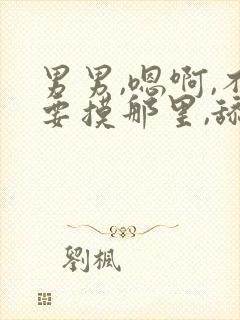 男男,嗯啊,不
要摸那里,舔
劉楓